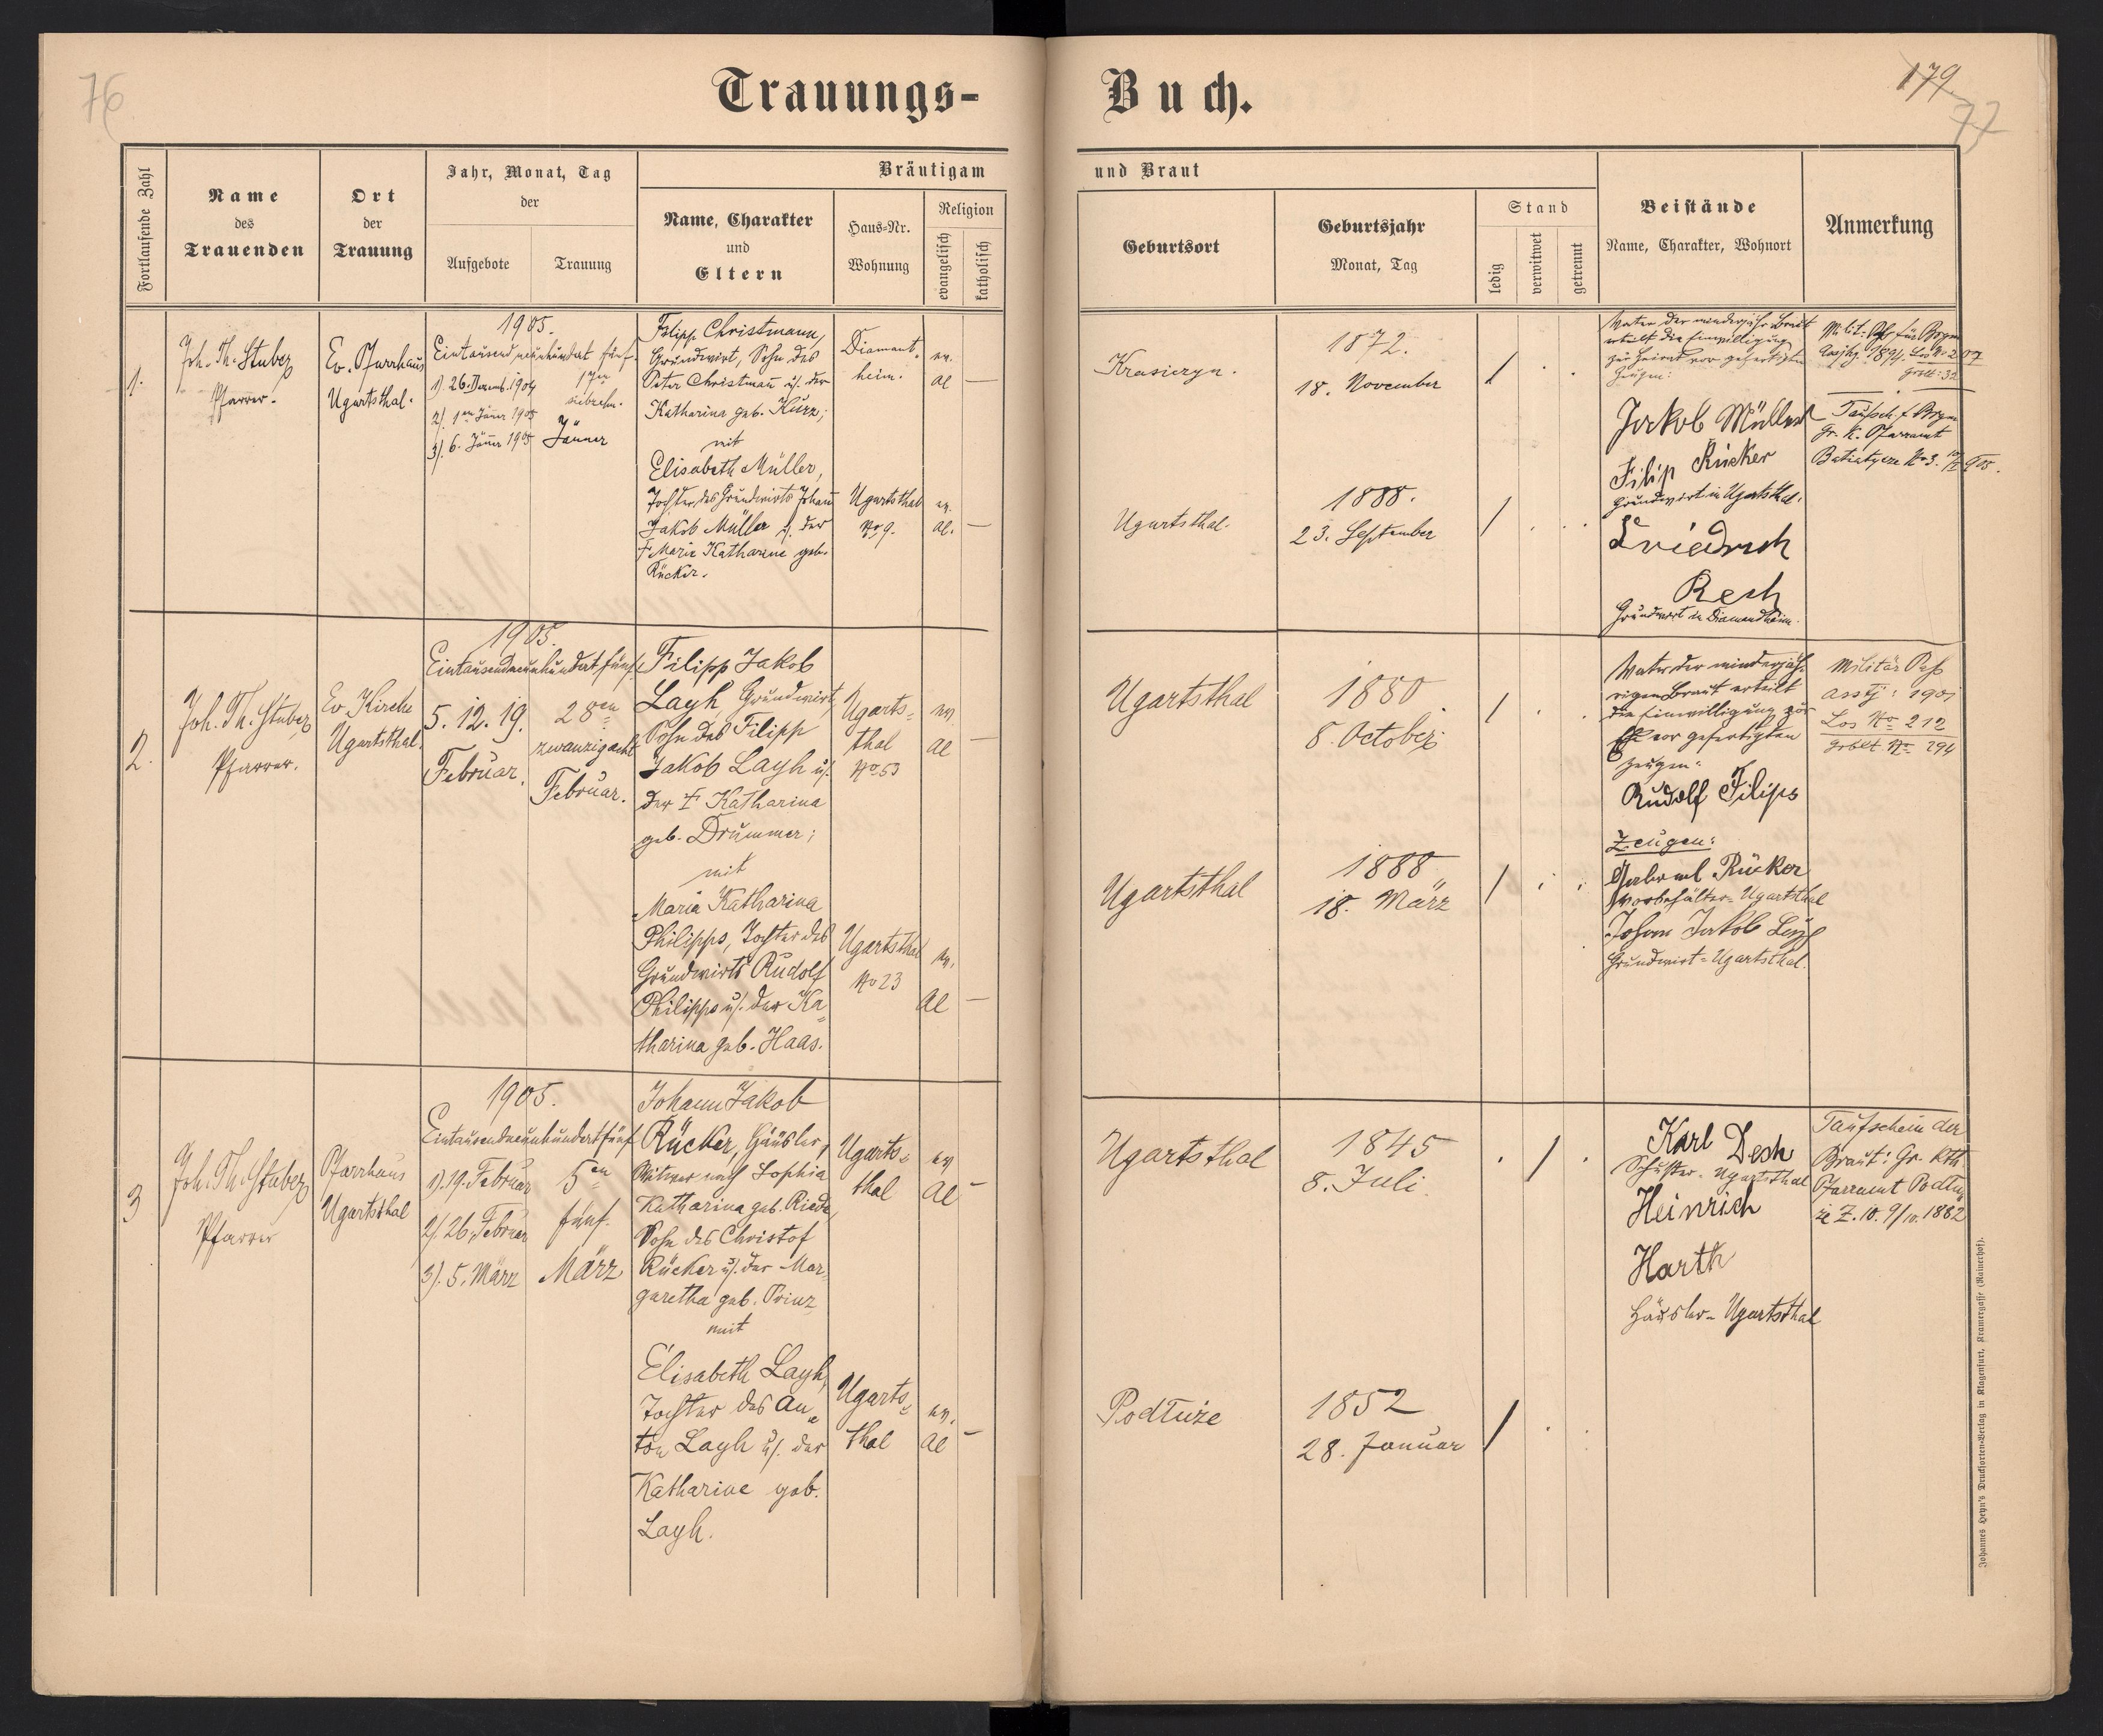 76
Trauungs-
Buch.
179
77
Fortlaufende Zahl
Name
des
Trauenden
Ort
der
Trauung
Jahr, Monat, Tag
der
Aufgebote
Trauung
Bräutigam
Name, Charakter
und
Eltern
Haus-Nr.
Wohnung
Religion
evangelisch
katholisch
und Braut
Geburtsort
Geburtsjahr
Monat, Tag
Stand
ledig
verwitwet
getrennt
Beistände
Name, Charakter, Wohnort
Anmerkung
1.
Joh. Th. Stuber
Pfarrer.
Ev. Pfarrhaus
Ugartsthal.
1905.
Eintausendneunhundert fünf.
1). 26. Dezemb. 1904
2). 1ten Jänner 1905
3). 6. Jänner 1905
17en
siebzehn.
Jänner
Filipp Christmann,
Grundwirt, Sohn des
Peter Christmann u. der
Katharina geb. Kurz;
mit
Elisabeth Müller,
Tochter des Grundwirts Johann
Jakob Müller u. der
† Marie Katharine geb.
Rücker.
Diamant-
heim.
Ugartsthal
No 9.
ev.
AC —
ev.
AC. —
Krasiczyn.
Ugartsthal.
1872.
18. November
1888.
23. September
/ . .
/ . .
Vater der minderjähr. Braut
erteilt die Einwilligung
zur Heirat vor gefertigten
Zeugen:
Jakob Müller
Filip Rücker
Grundwirt in Ugartsthal.
Friedrich
Rech
Grundwirt in Diamandheim.
Taufsch. f. Brgm
Gr. K. Pfarramt
2.
Joh. Th. Stuber
Pfarrer.
Ev. Kirche
Ugartsthal.
1905.
Eintausendneunhundert fünf.
5. 12. 19.
Februar.
28en
zwanzigacht
Februar.
Filipp Jakob
Layh, Grundwirt,
Sohn des Filipp
Jakob Layh u.
der † Katharina
geb. Drummer;
mit
Maria Katharina
Philipps, Tochter des
Grundwirts Rudolf
Philipps u. der Ka-
tharina geb. Haas.
Ugarts-
thal
No 53
Ugartsthal
No 23
ev.
AC —
ev.
AC —
Ugartsthal
Ugartsthal
1880.
8. October
1888
18. März
/ . .
/ . .
Vater der minderjäh-
rigen Braut erteilt
die Einwilligung zur
Ehe vor gefertigten
Zeugen:
Rudolf Filips
Zeugen:
Rücker
Ugartsthal
Johan Jakob
Grundwirt - Ugartsthal.
Militär Paß
Asstj: 1901
Los No 212
Grblt. No 294
3
Joh. Th. Stuber
Pfarrer
Pfarrhaus
Ugartsthal
1905.
Eintausendneunhundertfünf
1). 19. Februar
2). 26. Februar
3). 5. März
5en
fünf.
März
Johann Jakob
Rücker, Häusler,
Witwer nach Sophia
Katharina geb.
Sohn des Christof
Rücker u. der Mar-
garetha geb. Prinz
mit
Elisabeth Layh,
Tochter des An-
ton Layh u. der
Katharine geb.
Layh.
Ugarts-
thal
Ugarts-
thal
ev
AC —
ev.
AC —
Ugartsthal
Podtuże
1845
8. Juli.
1852
28. Januar
. / .
/ . .
Karl Desch
Schuster - Ugartsthal
Heinrich
Harth
Häusler - Ugartsthal
Taufschein der
Braut: Gr. kth.
Pfarramt Podtu-
że Z. 10. 9/10. 1882
Johannes Heyn's Drucksorten-Verlag in Klagenfurt, Kramergasse (Rainerhof).